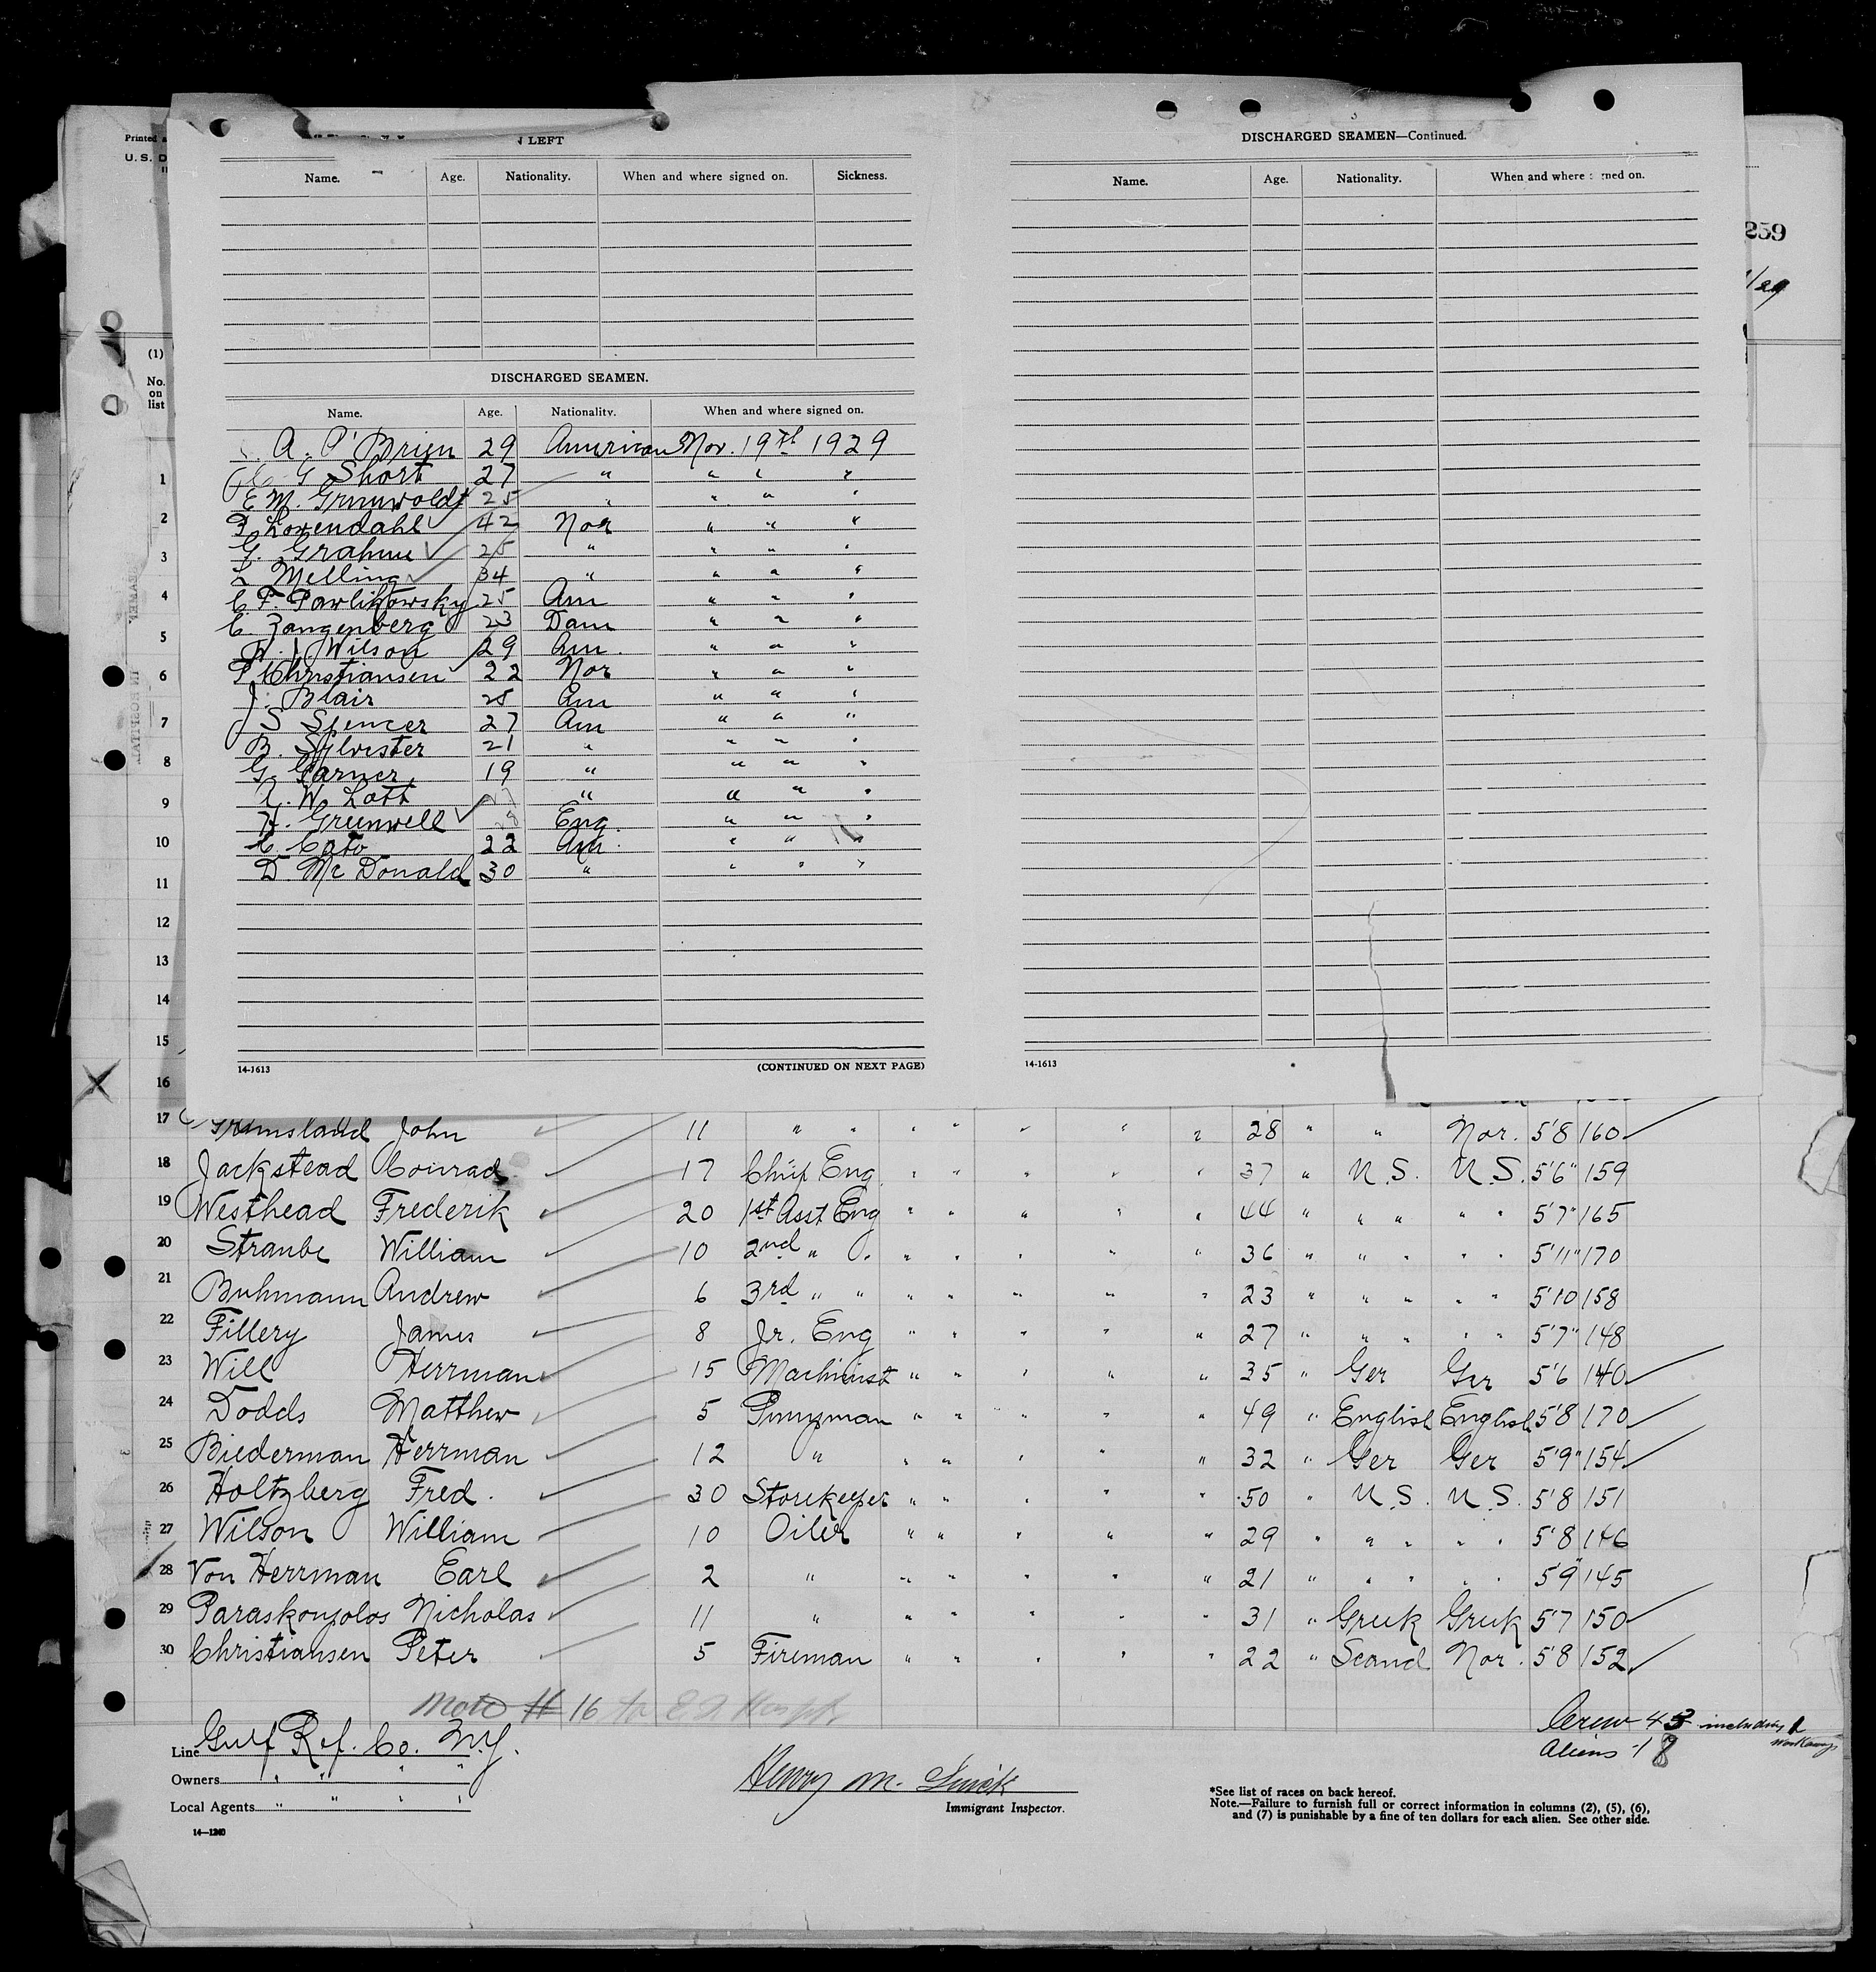 Printed
U. S. D
N LEFT
Name. Age. Nationality. When and where signed on. Sickness.
DISCHARGED SEAMEN.
Name. Age. Nationality. When and where signed on.
A. O'Brien 29 American Nov. 19th 1929
G Short 27 " " " "
E M. Grunwoldt 25 " " " "
Lovendahl 42 Nor " " "
G. Grahme 25 " " " "
L Melling 34 " " " "
C F. Pawlikowsky 25 Am " " "
C. Zangenberg 23 Dam " " "
W. J Wilson 29 Am. " " "
P Christiansen 22 Nor " " "
J. Blair 25 Am " " "
S Spencer 27 Am " " "
B. Sylvester 21 " " " "
G. Garner 19 " " " "
W. Lott " " " "
H. Greenwell Eng. " " "
C. Cato 22 Am. " " "
D McDonald 30 " " " "
14-1613 (CONTINUED ON NEXT PAGE)
DISCHARGED SEAMEN—Continued.
Name. Age. Nationality. When and where signed on.
14-1613
259
1/29
(1)
No. on list
1
2
3
4
5
6
7
8
9
10
11
12
13
14
15
16
17 Grimsland John 11 " " " " " " " 28 " " Nor. 5'8 160
18 Jackstead Conrad 17 Chief Eng. " " " " " 37 " U.S. U.S. 5'6" 159
19 Westhead Frederik 20 1st Asst Eng " " " " " 44 " " " " " 5'7" 165
20 Straube William 10 2nd " " " " " " " 36 " " " " " 5'11" 170
21 Buhmann Andrew 6 3rd " " " " " " " 23 " " " " " 5'10 158
22 Fillery James 8 Jr. Eng " " " " " 27 " " " " " 5'7" 148
23 Will Herrman 15 Machinist " " " " " 35 " Ger Ger 5'6 140
24 Dodds Matthew 5 Pumpman " " " " " 49 " English English 5'8 170
25 Biederman Herrman 12 " " " " " " 32 " Ger Ger 5'9" 154
26 Holtzberg Fred. 30 Storekeeper " " " " " 50 " U.S. U.S. 5'8 151
27 Wilson William 10 Oiler " " " " " 29 " " " " " 5'8 146
28 Von Herrman Earl 2 " " " " " " 21 " " " " " 5'9 145
29 Paraskouzolos Nicholas 11 " " " " " " 31 " Greek Greek 5'7 150
30 Christiansen Peter 5 Fireman " " " " " 22 " Scand Nor. 5'8 152
# 16 to
Crew 43 including 1 workaway
Aliens 18
Line Gulf Ref. Co. N.Y.
Owners " " " "
Local Agents " " " "
14—1240
Henry M.
Immigrant Inspector.
*See list of races on back hereof.
Note.—Failure to furnish full or correct information in columns (2), (5), (6),
and (7) is punishable by a fine of ten dollars for each alien. See other side.